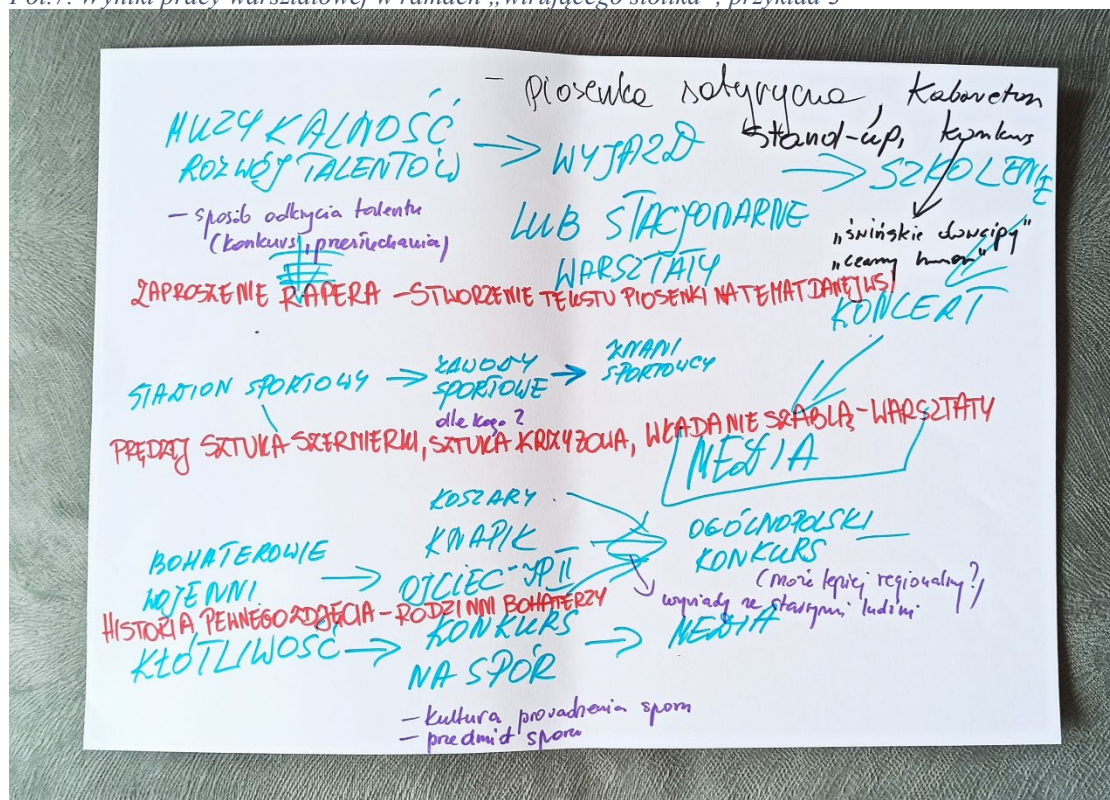 Fot.7. Wyniki pracy warsztatowej w ramach „wirującego stolika”, przykład 3
- piosenka satyryczna, Kabareton
stand-up, konkurs
MUZYKALNOŚĆ
ROZWÓJ TALENTÓW
WYJAZD
LUB STACJONARNE
WARSZTATY
SZKOLENIE
- sposób odkrycia talentu
(konkurs, przesłuchania)
dowcipy"
"czarny humor"
ZAPROSZENIE RAPERA - STWORZENIE TEKSTU PIOSENKI NA TEMAT DANEJ WSI
KONCERT
STADION SPORTOWY
ZAWODY
SPORTOWE
ZNANI
SPORTOWCY
dla kogo?
PRĘDZEJ SZTUKA SZERMIERKI, SZTUKA KRZYŻOWA, WŁADANIE SZABLĄ - WARSZTATY
MEDIA
BOHATEROWIE
WOJENNI
KOSZARY
KNAPIK
OJCIEC JP II
OGÓLNOPOLSKI
KONKURS
(może lepiej regionalny?)
wywiady ze starszymi ludźmi
HISTORIA PEWNEGO ZDJĘCIA - RODZINNI BOHATERZY
KŁÓTLIWOŚĆ
KONKURS
NA SPÓR
MEDIA
- kultura prowadzenia sporu
- przedmiot sporu